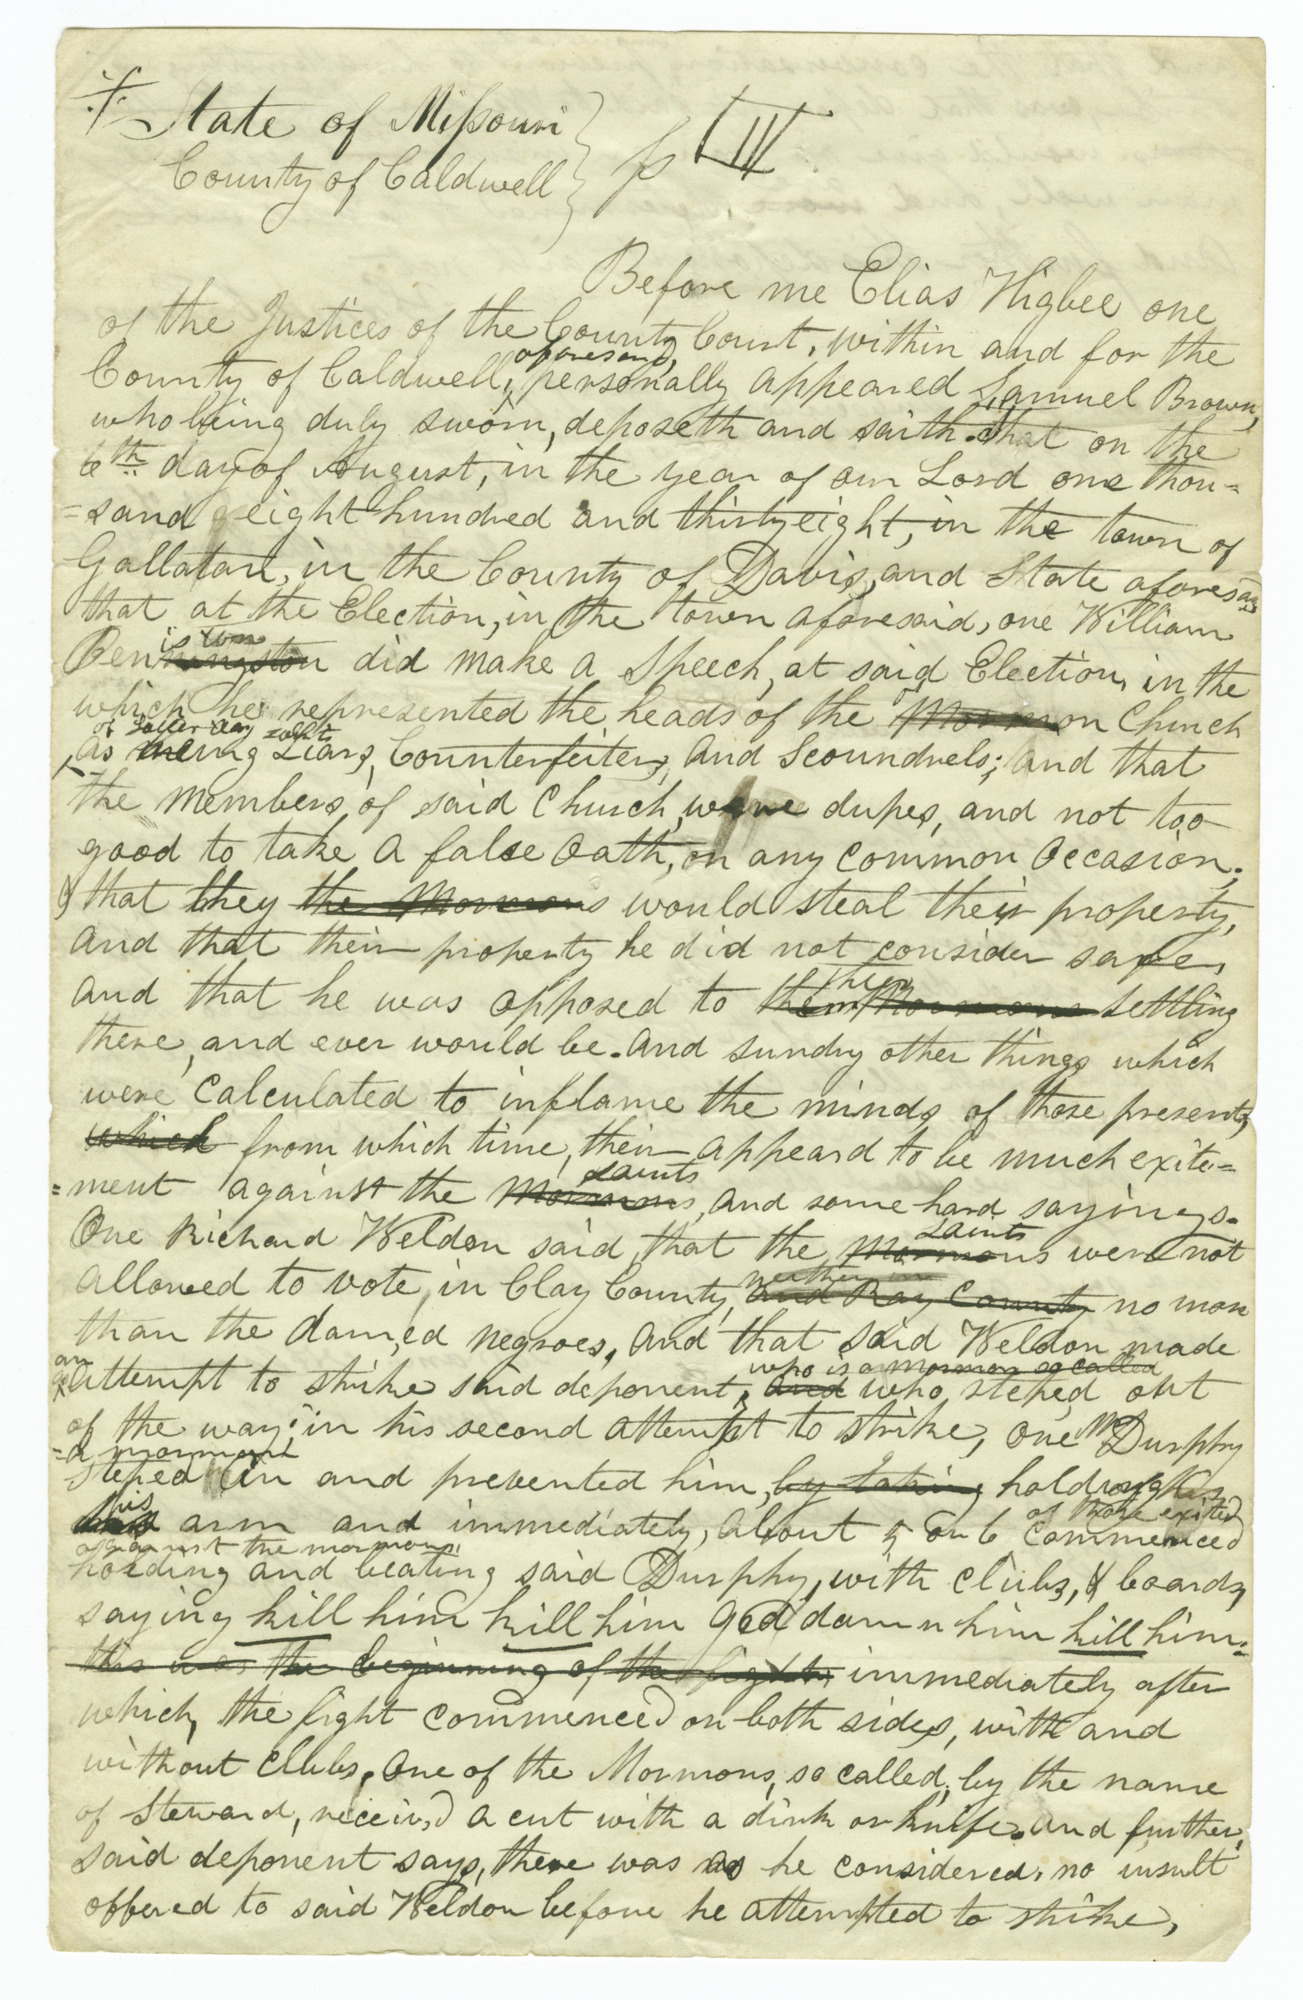 State of Missouri
County of Caldwell } ss IIII
Before me Elias Higbee one
of the Justices of the County Court, within and for the
aforesaid,
County of Caldwell, personally appeared Samuel Brown,
who being duly sworn, deposeth and saith. that on the
6th day of August, in the year of our Lord one thou=
=sand eight hundred and thirty eight, in the town of
Gallatan, in the County of Davis, and State aforesaid
that at the Election, in the town aforesaid, one William
Penningston did make a Speech, at said Election, in the
which he represented the heads of the Mormon Church
of Latter day saints
as being Liars, Counterfeiters, and Scoundrels; and that
the members of said Church, were dupes, and not too
good to take a false Oath, on any common Occasion;
& that they the Mormons would steal their property,
and that their property he did not consider safe,
them
and that he was opposed to them Mormons settling
there, and ever would be. and sundry other things which
were calculated to inflame the minds of those present,
which from which time, their appeard to be much exite=
saints
=ment against the Mormons, and some hard sayings.
Saints
One Richard Weldon said, that the Mormons were not
neither in
allowed to vote, in Clay County, and Ray County no more
than the damed negroes, and that said Weldon made
who is a mormon so called
an attempt to strike said deponent, and who, steped out
of the way; in his second attempt to strike, one Mr Durphy
=a mormon
steped in and prevented him, by taking hold
his of those exited
arm and immediately, about 5 or 6 commenced
against the mormons,
holding and beating said Durphy, with clubs, & boards,
saying kill him kill him God damn him kill him=
this was the beginning of the fight immediately after
which, the fight commenced on both sides, with and
without clubs, One of the Mormons, so called, by the name
of Steward, received a cut with a dirk or knife. and further,
said deponent says, there was as he considered, no insult
offered to said Weldon before he attempted to strike,